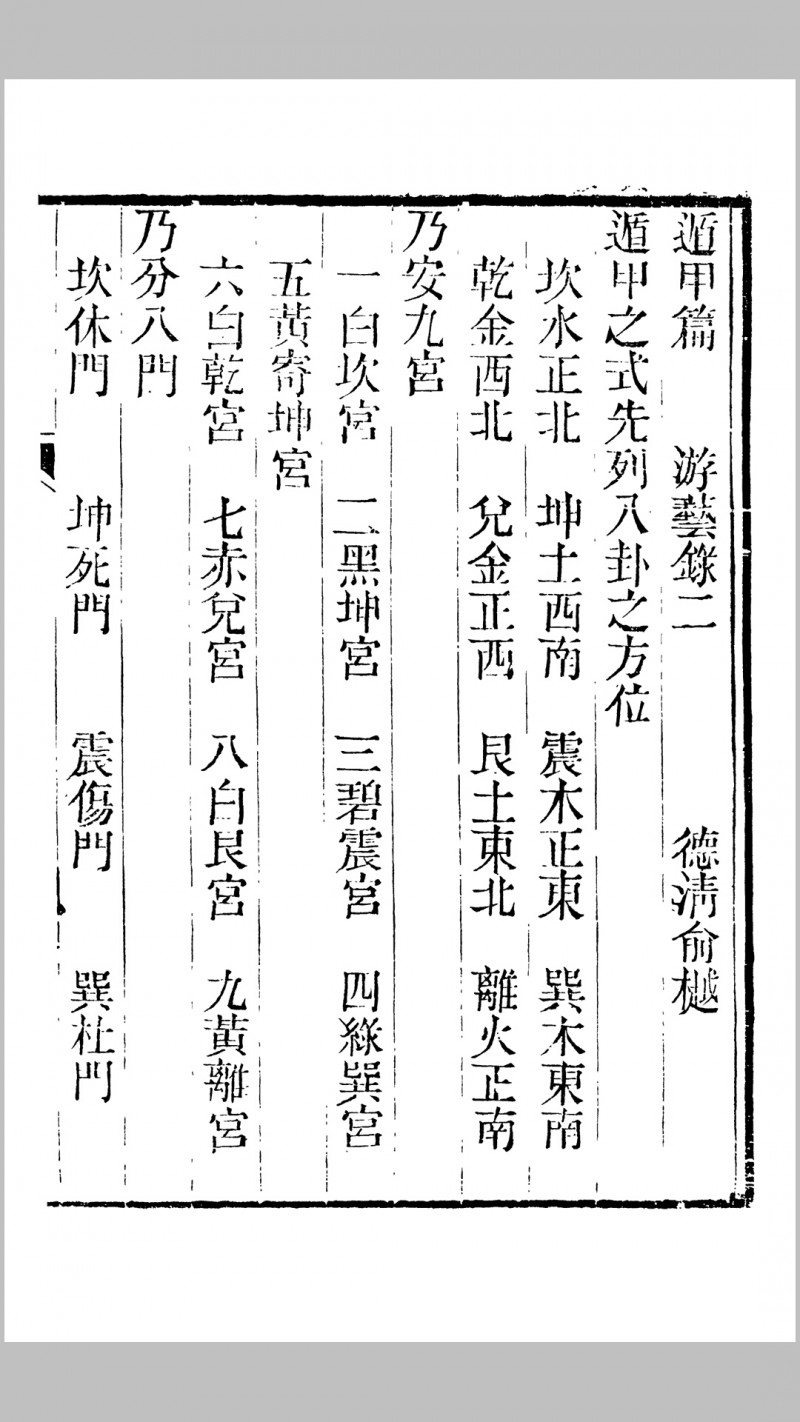 遁甲篇　游藝錄二　德清俞樾
遁甲之式先列八卦之方位
坎水正北　坤土西南　震木正東　巽木東南
乾金西北　兌金正西　艮土東北　離火正南
乃安九宮
一白坎宮　二黑坤宮　三碧震宮　四綠巽宮
五黃寄坤宮
六白乾宮　七赤兌宮　八白艮宮　九黃離宮
乃分八門
坎休門　坤死門　震傷門　巽杜門